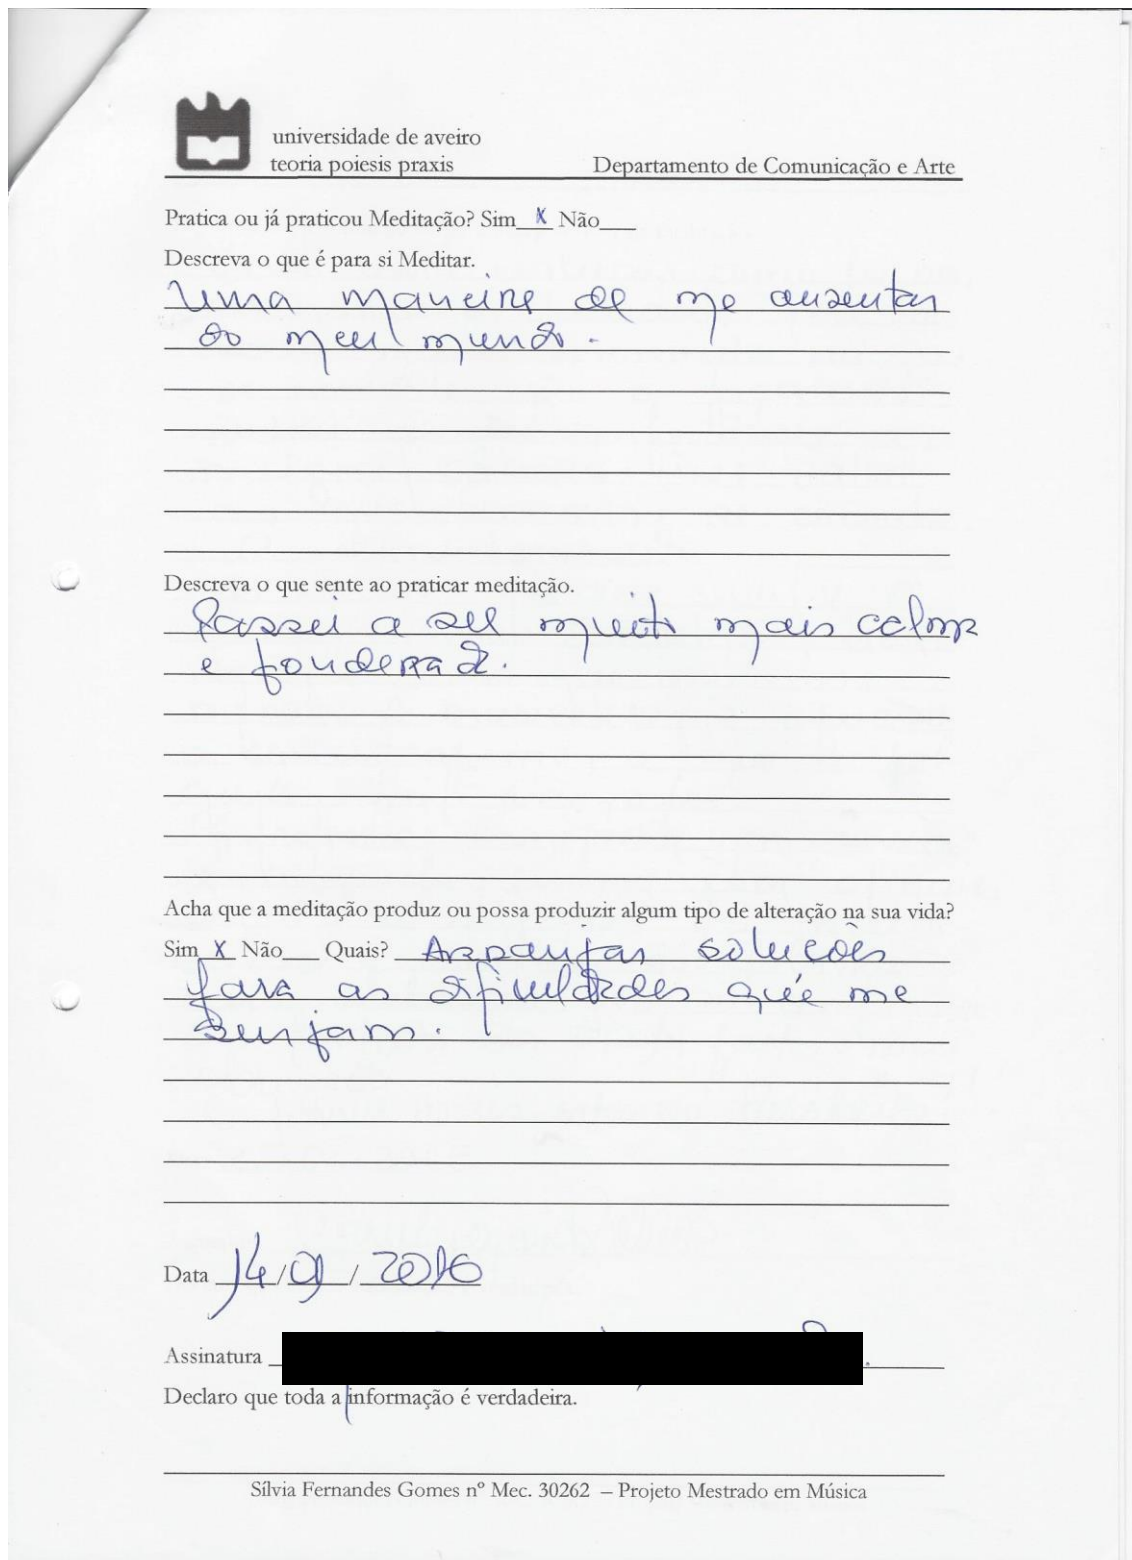 universidade de aveiro
teoria poiesis praxis
Departamento de Comunicação e Arte
Pratica ou já praticou Meditação? Sim X Não___
Descreva o que é para si Meditar.
Uma maneira de me ausentar
do meu mundo.
Descreva o que sente ao praticar meditação.
Passei a ser muito mais calma
e ponderada.
Acha que a meditação produz ou possa produzir algum tipo de alteração na sua vida?
Sim X Não___ Quais? Arranjar soluções
para as dificuldades que me
surjam.
Data 14/01/2016
Assinatura
Declaro que toda a informação é verdadeira.
Sílvia Fernandes Gomes nº Mec. 30262 – Projeto Mestrado em Música